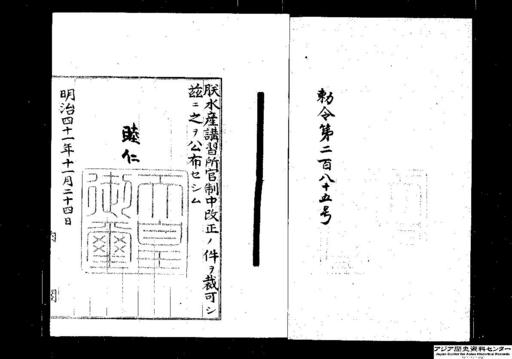 勅令第二百八十五号
朕水産講習所官制中改正ノ件ヲ裁可シ
茲ニ之ヲ公布セシム
睦仁
天皇御璽
明治四十一年十一月二十四日
内閣
アジア歴史資料センター
Japan Center for Asian Historical Records